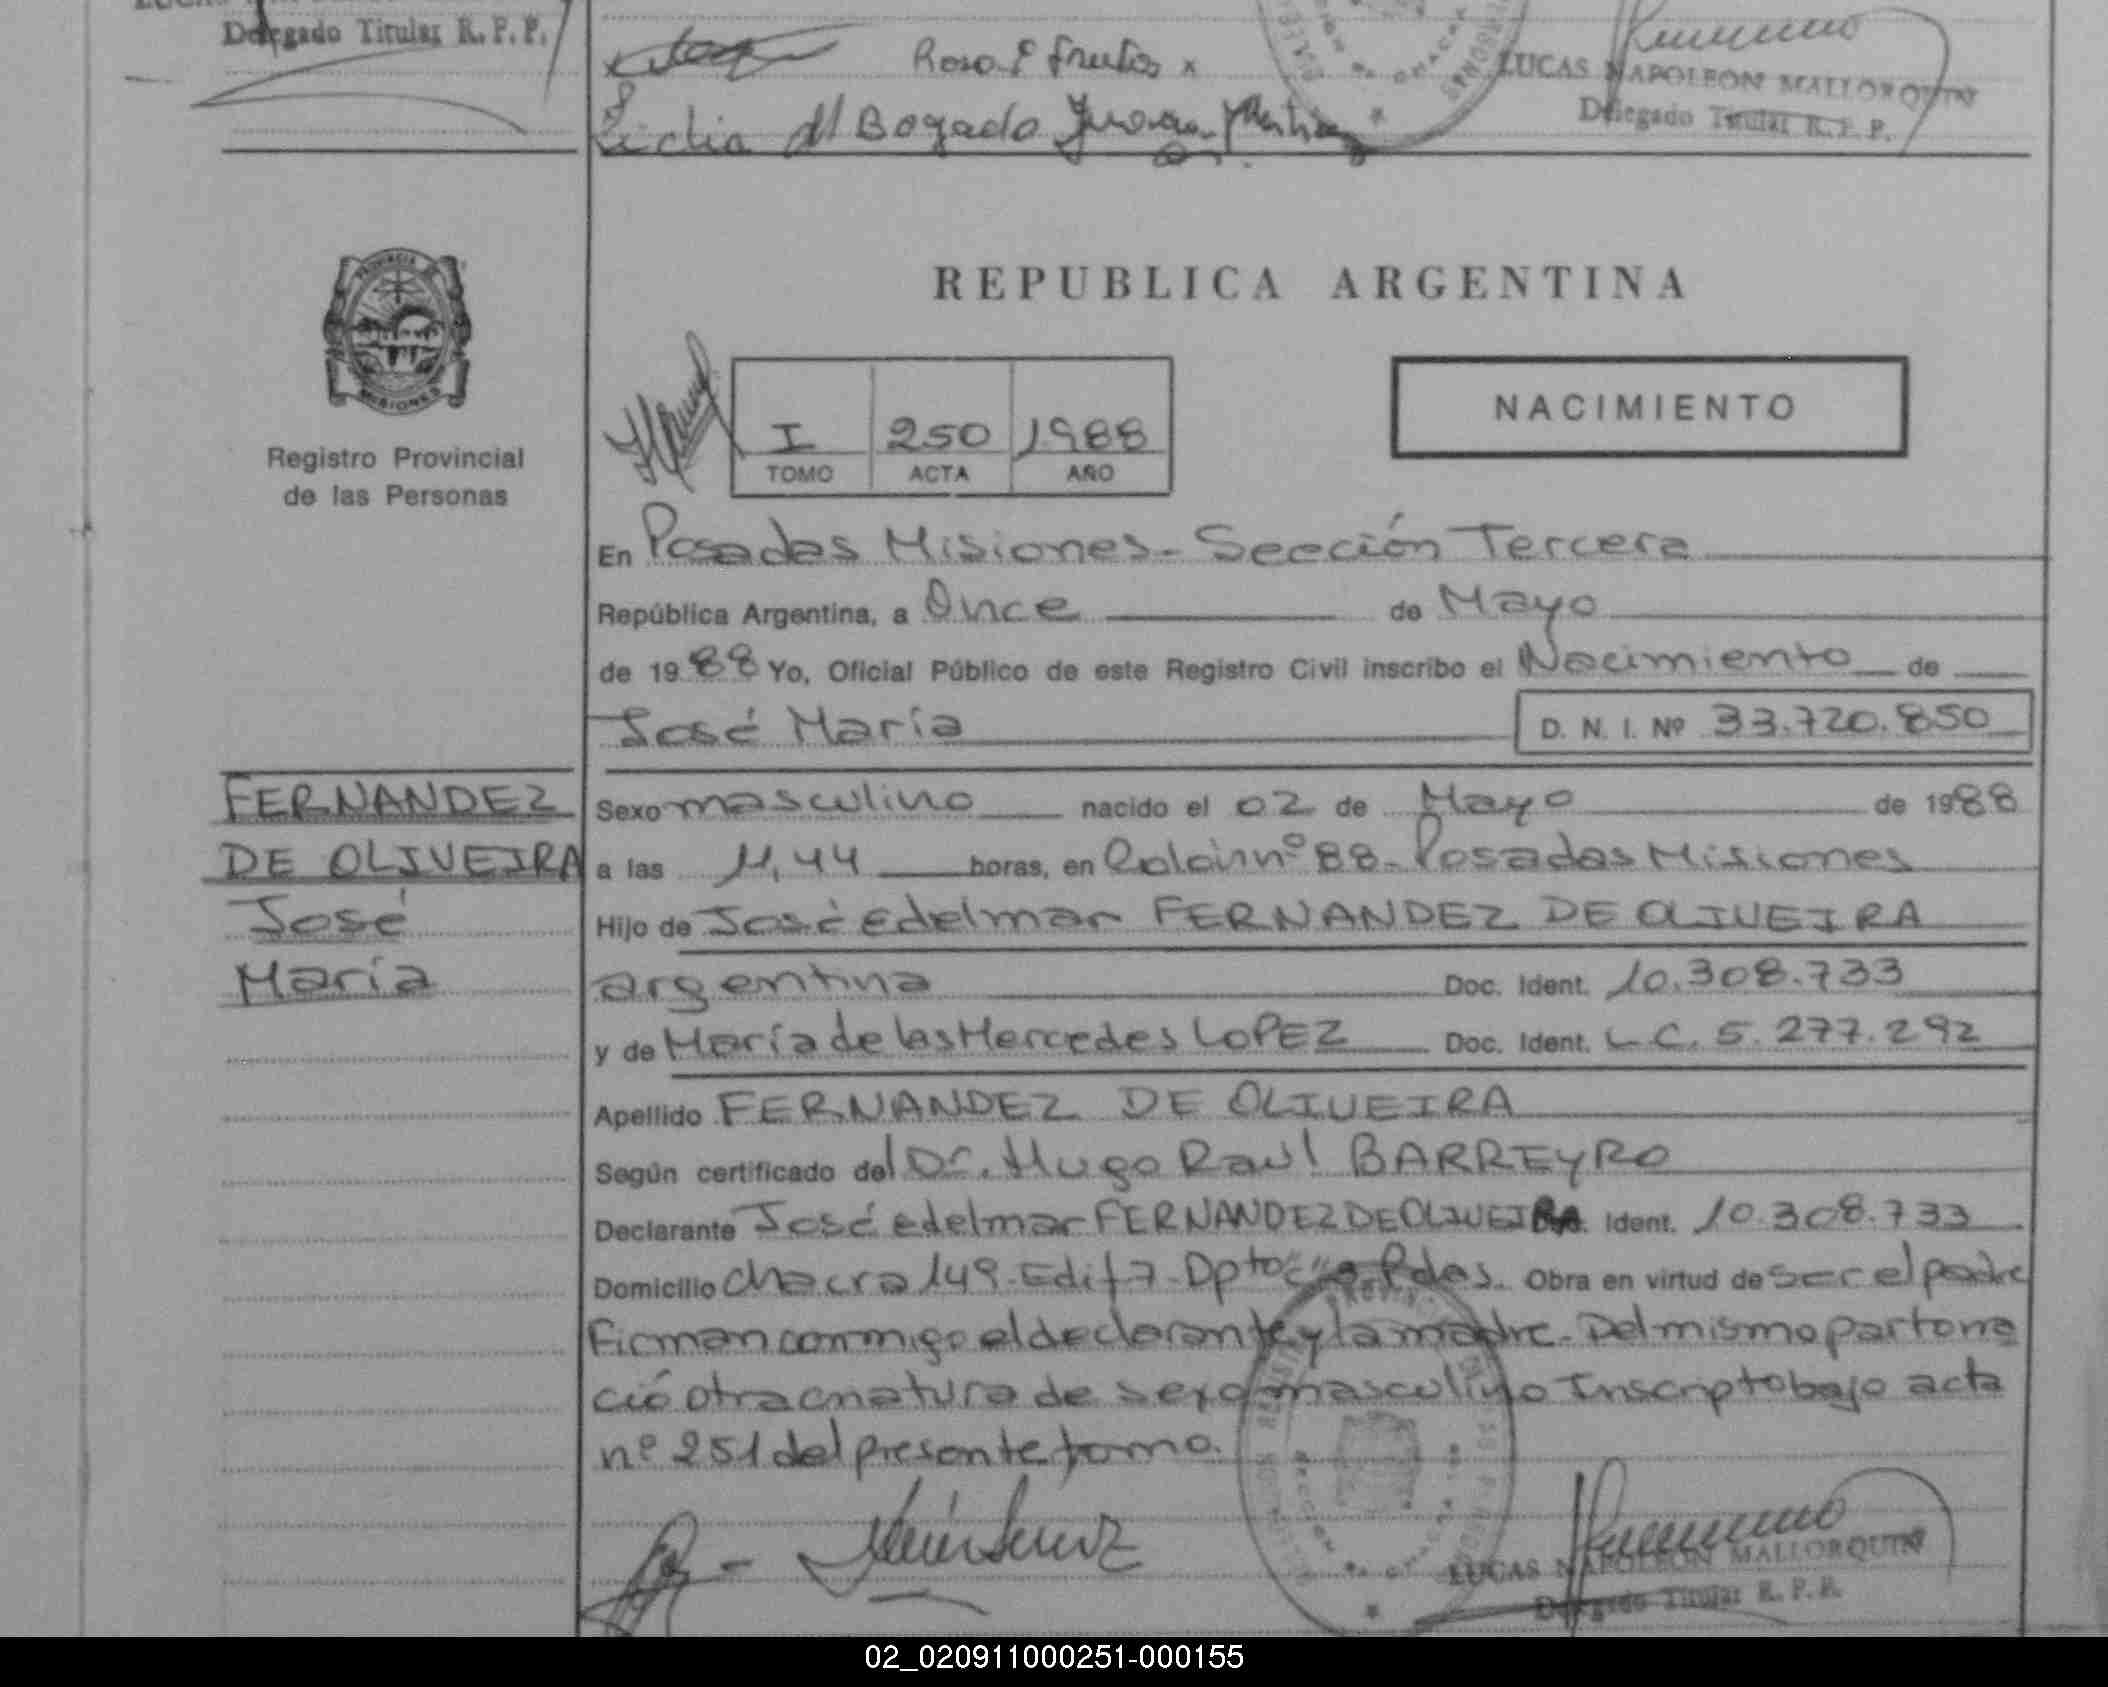 Delegado Titular R. P. P.
Rosa E frutos x
Lidia M Bogado
LUCAS NAPOLEON MALLORQUIN
Delegado Titular R. P. P.
PROVINCIA DE
MISIONES
Registro Provincial
de las Personas
REPUBLICA ARGENTINA
NACIMIENTO
I 250 1988
TOMO ACTA AÑO
En Posadas Misiones - Sección Tercera
República Argentina, a Once de Mayo
de 1988 Yo, Oficial Público de este Registro Civil inscribo el Nacimiento de
José María D. N. I. Nº 33.720.850
FERNANDEZ
DE OLIVEIRA
José
María
Sexo masculino nacido el 02 de Mayo de 1988
a las 11,44 horas, en Colón nº 88 - Posadas Misiones
Hijo de José edelmar FERNANDEZ DE OLIVEIRA
argentina Doc. Ident. 10.308.733
y de María de las Mercedes LOPEZ Doc. Ident. L.C. 5.277.292
Apellido FERNANDEZ DE OLIVEIRA
Según certificado del Dr. Hugo Raul BARREYRO
Declarante José edelmar FERNANDEZ DE OLIVEIRA Ident. 10.308.733
Domicilio Chacra 149 - Edif 7 - Dpto "C" Pdas. Obra en virtud de ser el padre
Firman conmigo el declarante y la madre - Del mismo parto na
ció otra cnatura de sexo masculino Inscripto bajo acta
nº 251 del presente tomo.
LUCAS NAPOLEON MALLORQUIN
Delegado Titular R. P. P.
02_020911000251-000155